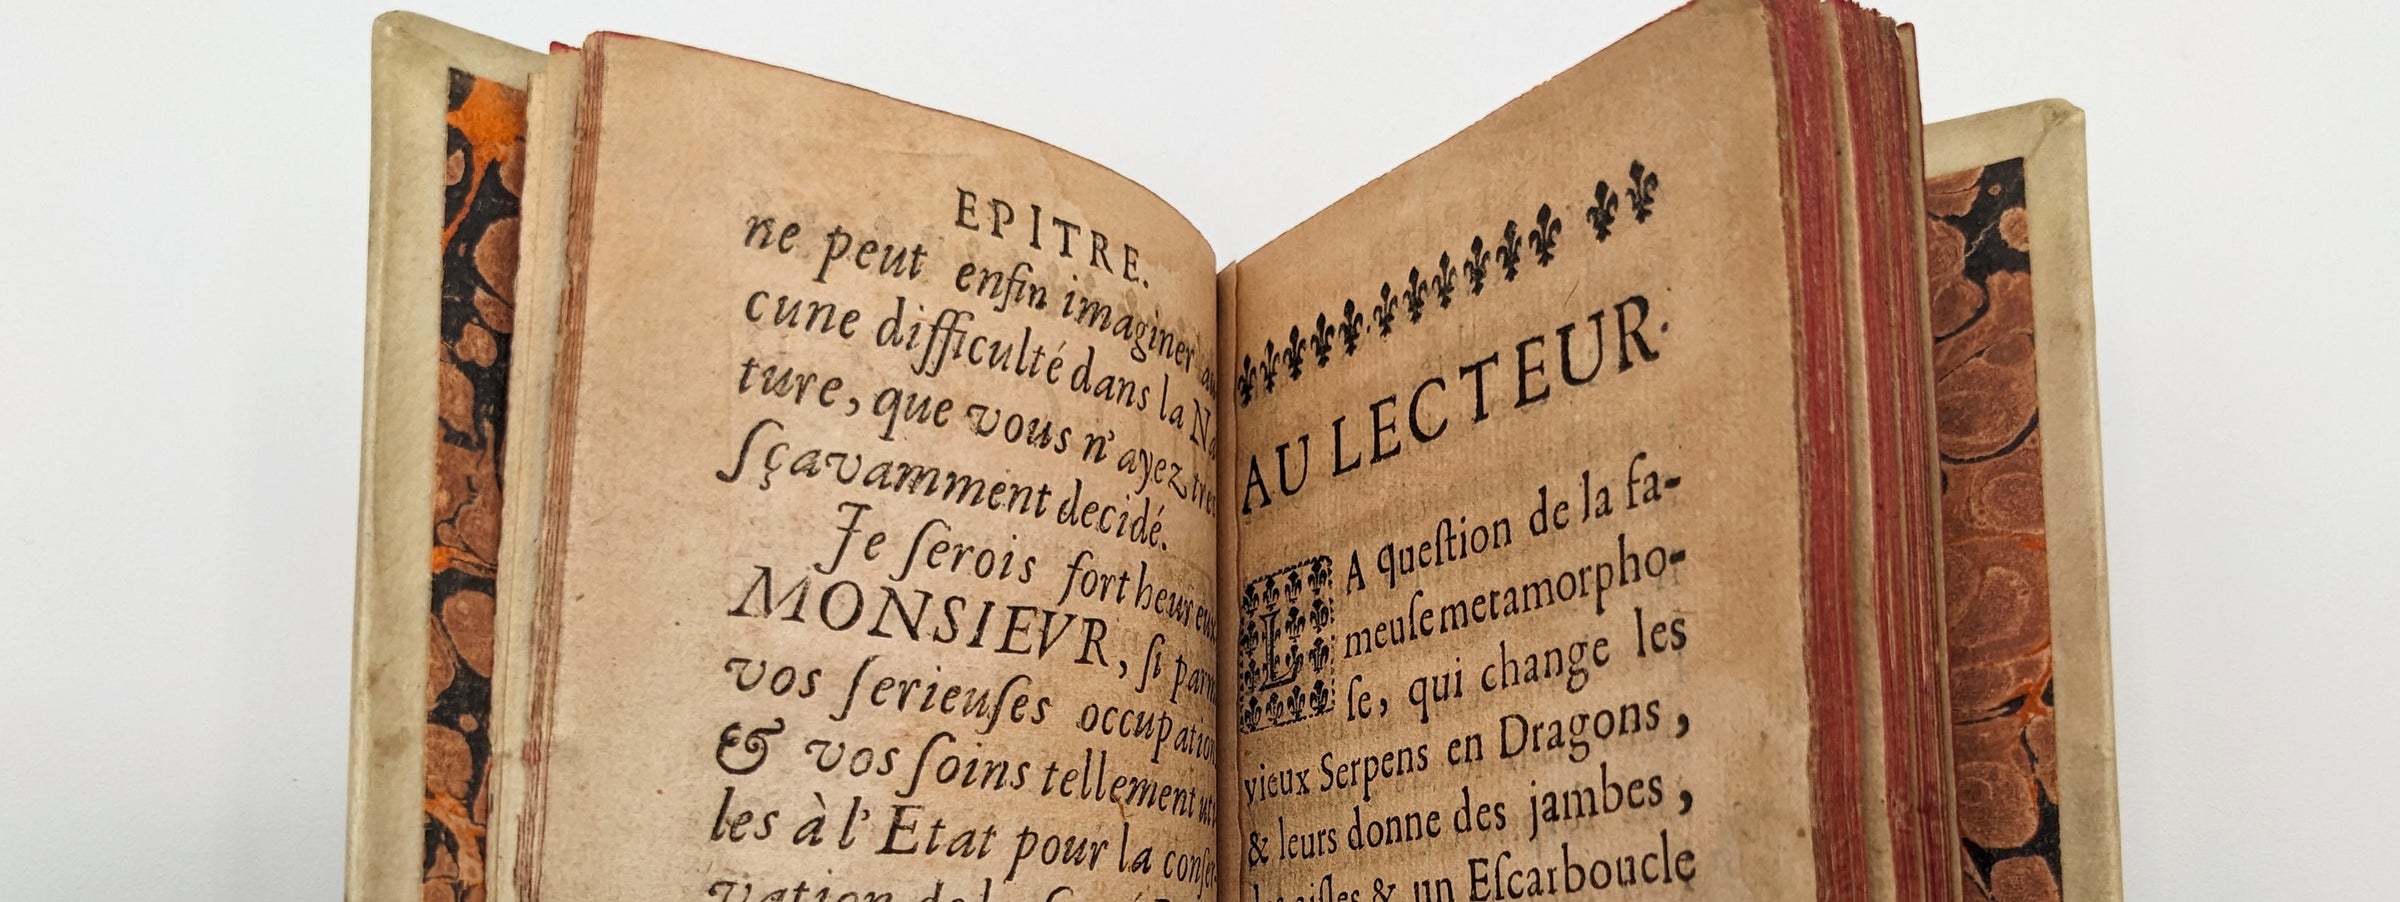 EPITRE.
ne peut enfin imaginer au
cune difficulté dans la Na
ture, que vous n'ayez tres
ſçavamment decidé.
Je ſerois fort heureux
MONSIEVR, ſi parm
vos ſerieuſes occupation
& vos ſoins tellement uti
les à l'Etat pour la conſer
vation de
AU LECTEUR.
LA queſtion de la fa-
meuſe metamorpho-
ſe, qui change les
vieux Serpens en Dragons,
& leurs donne des jambes,
aiſles & un Eſcarboucle